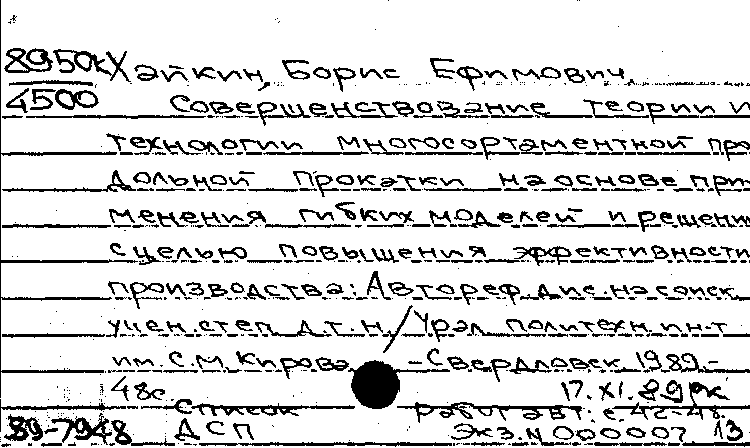 8950к Хайкин, Борис Ефимович.
4500 Совершенствование теории и
технологии многосортаментной про
дольной прокатки на основе при
менения гибких моделей и решени
с целью повышения эффективности
производства: Автореф. дис. на соиск.
учен. степ. д.т.н. / Урал. политехн. ин-т
им. С.М. Кирова. - Свердловск, 1989.-
48с. 17.XI.89
Список работ авт.: с.42-48.
89-7948 ДСП Экз.N 000007 13